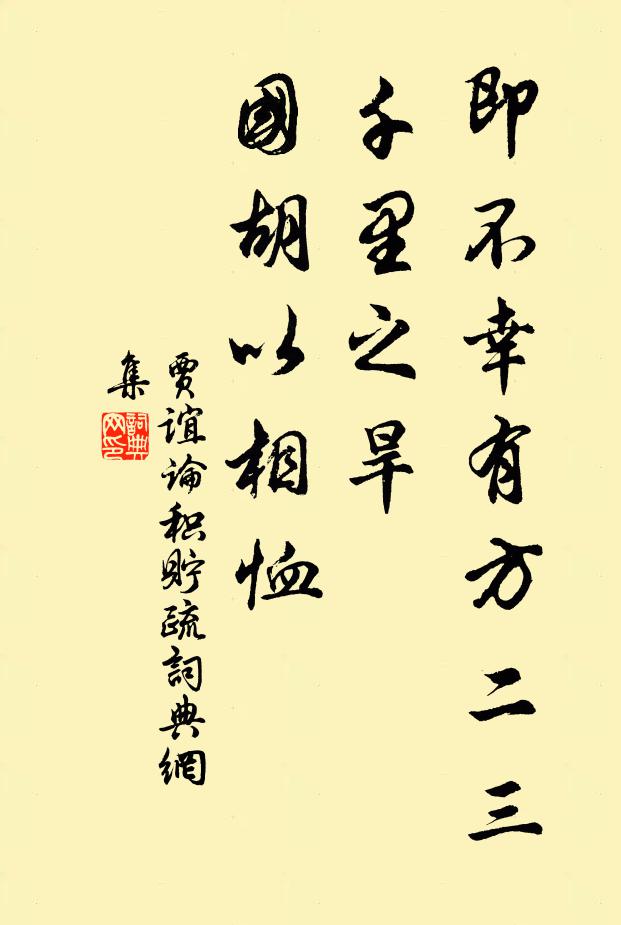 即不幸有方二三
千里之旱
國胡以相恤
賈誼論积貯疏詞典網
集
詞典网印